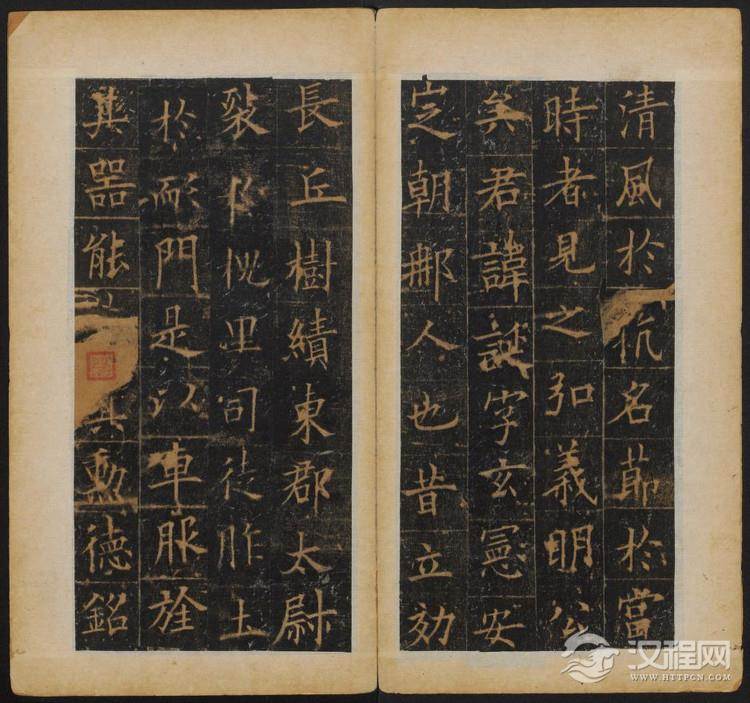 清風於抗名節於當
時者見之弘義明公
矣君諱誕字玄憲安
定朝那人也昔立効
長丘樹績東郡太尉
裂槐里司徒胙土
於耏門是以車服旌
其器能勳德銘
汉程网
WWW.HTTPCN.COM